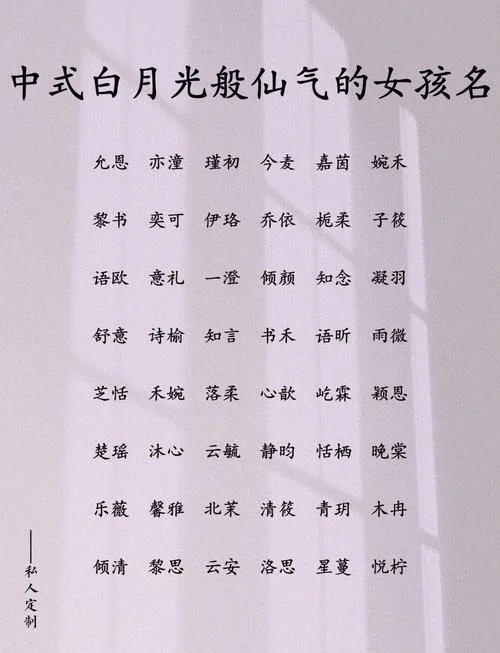 中式白月光般仙气的女孩名
允恩 亦潼 瑾初 今麦 嘉茵 婉禾
黎书 奕可 伊珞 乔依 栀柔 子筱
语欧 意礼 一澄 倾颜 知念 凝羽
舒意 诗榆 知言 书禾 语昕 雨微
芝恬 禾婉 落柔 心歆 屹霖 颖恩
楚瑶 沐心 云毓 静昀 恬栖 晚棠
乐薇 馨雅 北茉 清筱 青玥 木冉
倾清 黎思 云安 洛思 星蔓 悦柠
——私人定制